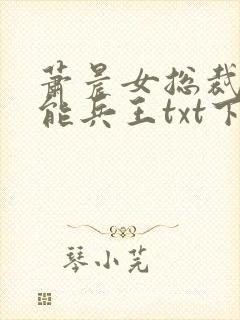 萧晨女总裁
能兵王txt下
琴小芫